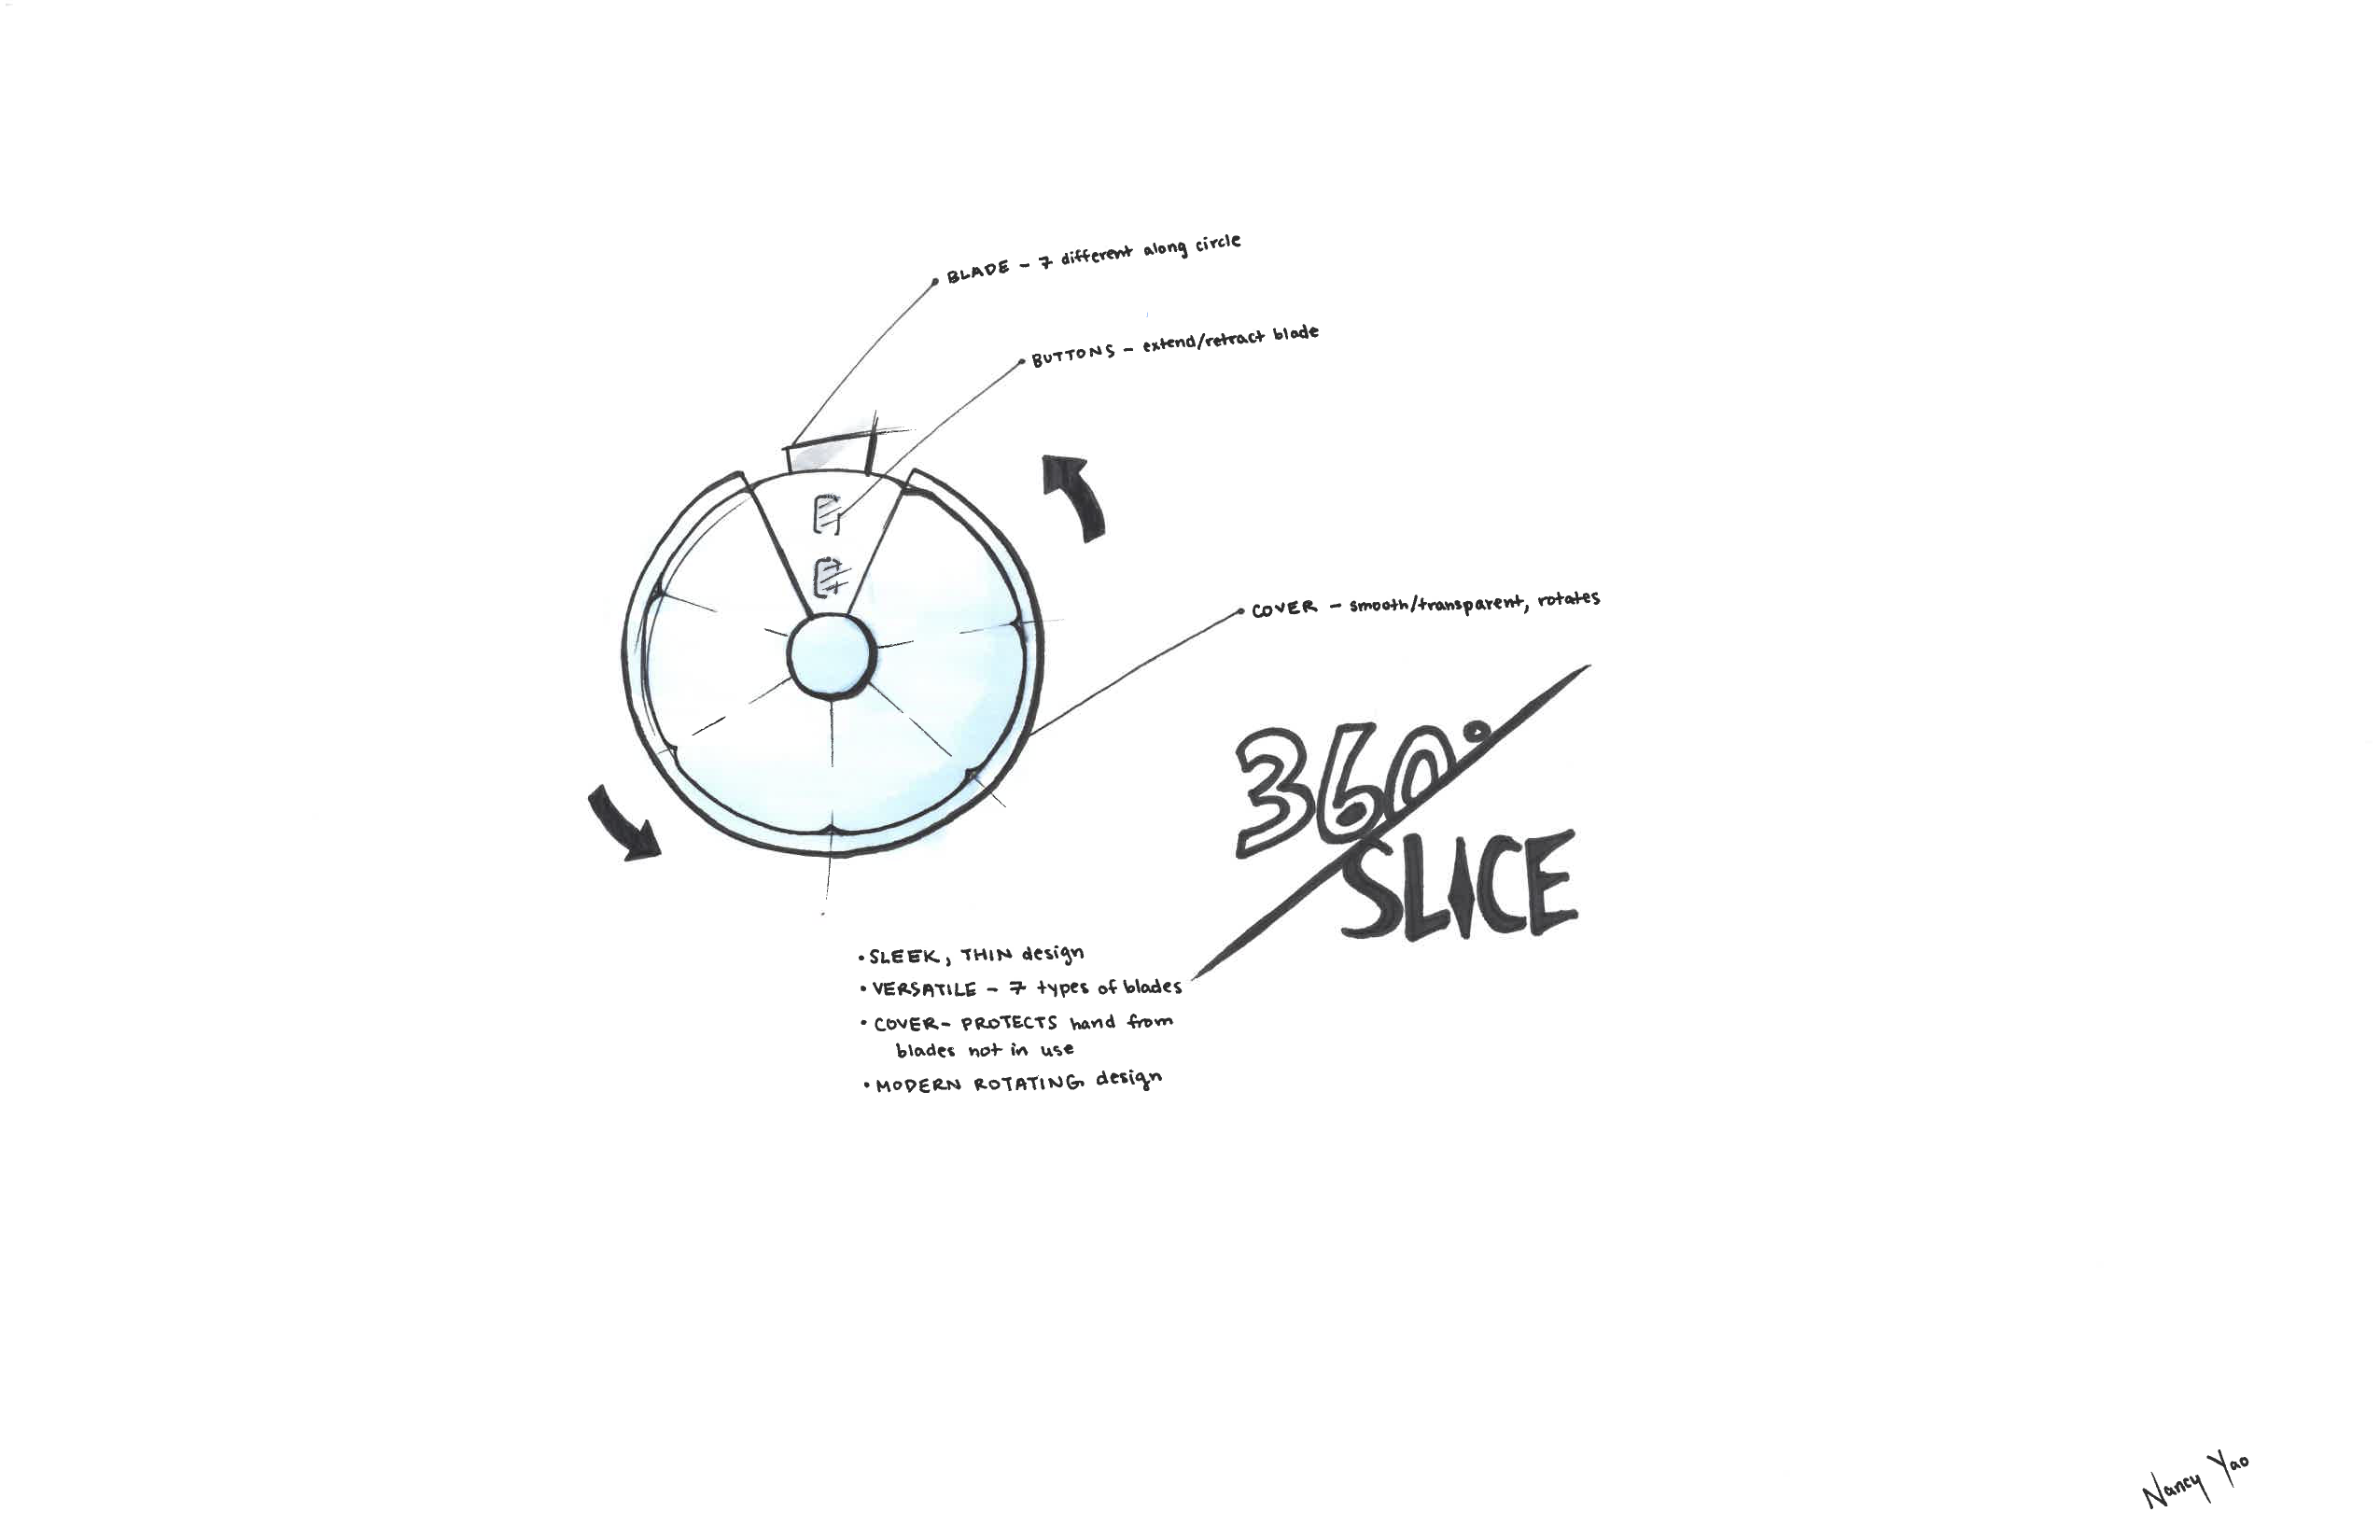 BLADE - 7 different along circle
BUTTONS - extend/retract blade
COVER - smooth/transparent, rotates
360°
SLICE
• SLEEK, THIN design
• VERSATILE - 7 types of blades
• COVER- PROTECTS hand from
blades not in use
• MODERN ROTATING design
Nancy Yao